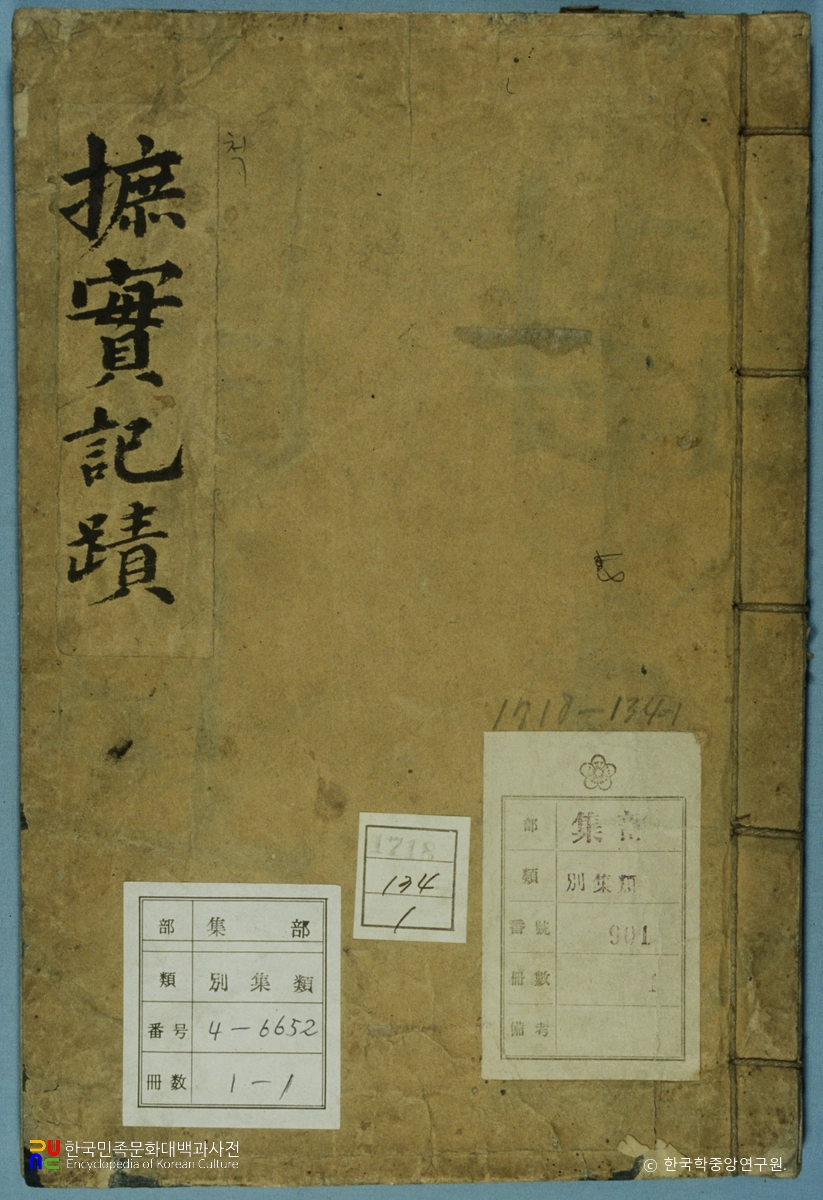 摭實記蹟
척
1718-134-1
部 集部
類 別集類
番號 901
冊數 1
備考
1718
134
1
部 集部
類 別集類
番号 4-6652
冊数 1-1
한국민족문화대백과사전
Encyclopedia of Korean Culture
© 한국학중앙연구원.